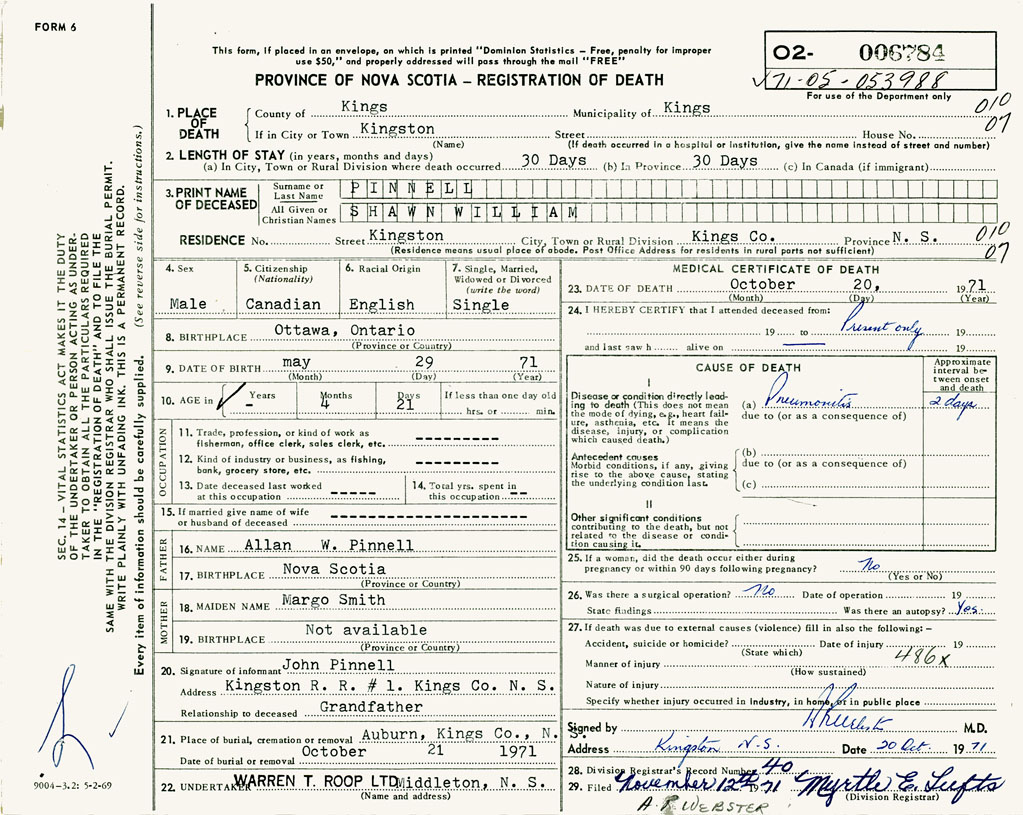 FORM 6
This form, if placed in an envelope, on which is printed "Dominion Statistics – Free, penalty for improper
use $50," and properly addressed will pass through the mail "FREE"
PROVINCE OF NOVA SCOTIA – REGISTRATION OF DEATH
02- 006784
71-05-053988
For use of the Department only
1. PLACE OF DEATH
County of Kings Municipality of Kings 010
If in City or Town Kingston Street House No. 07
(Name) (If death occurred in a hospital or institution, give the name instead of street and number)
2. LENGTH OF STAY (in years, months and days)
(a) In City, Town or Rural Division where death occurred 30 Days (b) In Province 30 Days (c) In Canada (if immigrant)
3. PRINT NAME OF DECEASED
Surname or Last Name PINNELL
All Given or Christian Names SHAWN WILLIAM
RESIDENCE No. Street Kingston City, Town or Rural Division Kings Co. Province N. S. 010
(Residence means usual place of abode. Post Office Address for residents in rural parts not sufficient) 07
4. Sex
Male
5. Citizenship
(Nationality)
Canadian
6. Racial Origin
English
7. Single, Married,
Widowed or Divorced
(write the word)
Single
8. BIRTHPLACE Ottawa, Ontario
(Province or Country)
9. DATE OF BIRTH may 29 71
(Month) (Day) (Year)
10. AGE in Years - Months 4 Days 21 If less than one day old
hrs. or min.
OCCUPATION
11. Trade, profession, or kind of work as
fisherman, office clerk, sales clerk, etc. ---------
12. Kind of industry or business, as fishing,
bank, grocery store, etc. ---------
13. Date deceased last worked
at this occupation -----
14. Total yrs. spent in
this occupation --
15. If married give name of wife
or husband of deceased ---------
FATHER
16. NAME Allan W. Pinnell
17. BIRTHPLACE Nova Scotia
(Province or Country)
MOTHER
18. MAIDEN NAME Margo Smith
19. BIRTHPLACE Not available
(Province or Country)
20. Signature of informant John Pinnell
Address Kingston R. R. # 1. Kings Co. N. S.
Relationship to deceased Grandfather
21. Place of burial, cremation or removal Auburn, Kings Co., N.
Date of burial or removal October 21 1971
22. UNDERTAKER WARREN T. ROOP LTD Middleton, N. S.
(Name and address)
MEDICAL CERTIFICATE OF DEATH
23. DATE OF DEATH October 20, 1971
(Month) (Day) (Year)
24. I HEREBY CERTIFY that I attended deceased from:
19 to Present only 19
and last saw h alive on 19
CAUSE OF DEATH
Approximate
interval be-
tween onset
and death
I
Disease or condition directly lead-
ing to death (This does not mean
the mode of dying, e.g., heart fail-
ure, asthenia, etc. It means the
disease, injury, or complication
which caused death.)
(a) Pneumonitis 2 days
due to (or as a consequence of)
Antecedent causes
Morbid conditions, if any, giving
rise to the above cause, stating
the underlying condition last.
(b)
due to (or as a consequence of)
(c)
II
Other significant conditions
contributing to the death, but not
related to the disease or condi-
tion causing it.
25. If a woman, did the death occur either during
pregnancy or within 90 days following pregnancy? No
(Yes or No)
26. Was there a surgical operation? No Date of operation 19
State findings Was there an autopsy? Yes.
27. If death was due to external causes (violence) fill in also the following: –
Accident, suicide or homicide? Date of injury 19
(State which) 486x
Manner of injury
(How sustained)
Nature of injury
Specify whether injury occurred in industry, in home, or in public place
Signed by M.D.
Address Kingston N.S. Date 20 Oct. 1971
28. Division Registrar's Record Number 40
29. Filed November 12th 1971 Myrtle E. Tufts
(Division Registrar)
A. R. WEBSTER
SEC. 14 – VITAL STATISTICS ACT MAKES IT THE DUTY
OF THE UNDERTAKER OR PERSON ACTING AS UNDER-
TAKER TO OBTAIN ALL THE PARTICULARS REQUIRED
IN THE "REGISTRATION OF DEATH" AND TO FILE THE
SAME WITH THE DIVISION REGISTRAR WHO SHALL ISSUE THE BURIAL PERMIT.
WRITE PLAINLY WITH UNFADING INK. THIS IS A PERMANENT RECORD.
Every item of information should be carefully supplied. (See reverse side for instructions.)
9004-3.2: 5-2-69